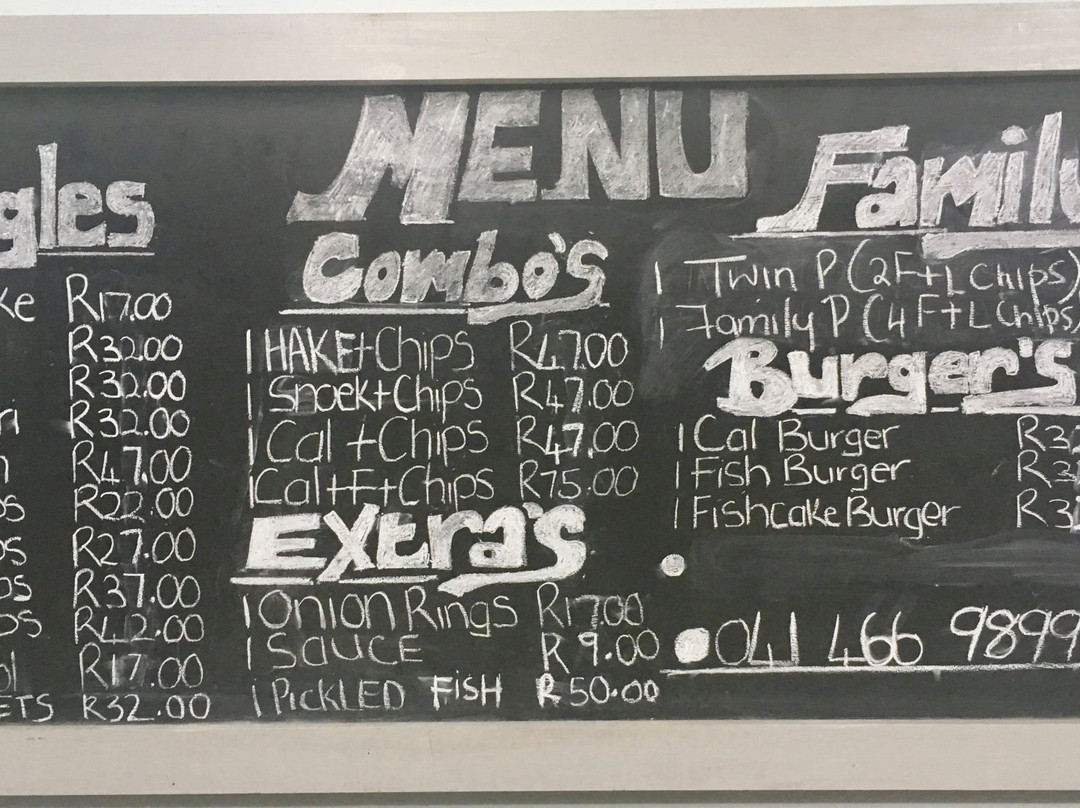 MENU
gles
ke R17.00
R32.00
R32.00
ri R32.00
R47.00
ps R22.00
ps R27.00
ps R37.00
ps R42.00
ol R17.00
ETS R32.00
Combo's
1 HAKE+Chips R47.00
1 Snoek+Chips R47.00
1 Cal +Chips R47.00
1 Cal+F+Chips R75.00
Extra's
1 Onion Rings R17.00
1 SAUCE R9.00
1 PICKLED FISH R50.00
Family
1 Twin P (2F+L Chips)
1 Family P (4F+L Chips)
Burger's
1 Cal Burger R3
1 Fish Burger R3
1 Fishcake Burger R3
041 466 9899